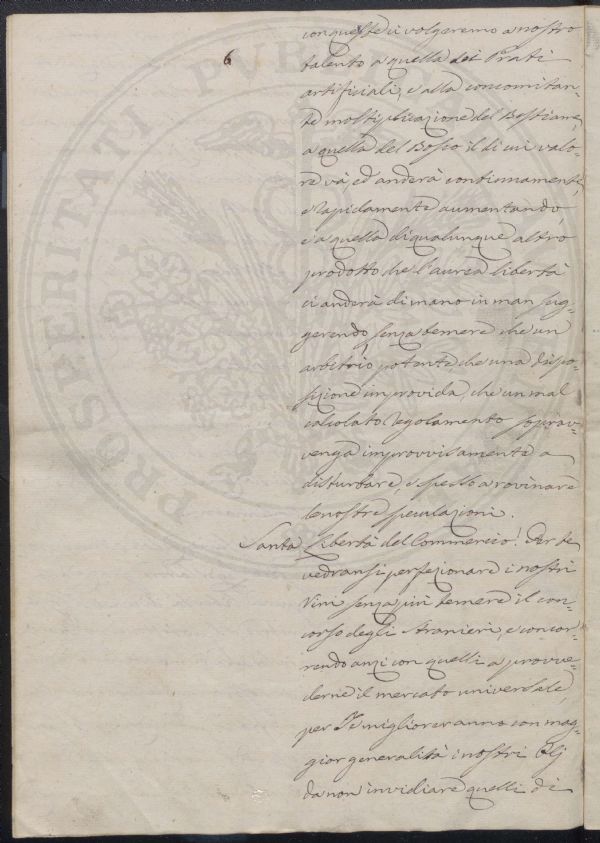 6
con queste ci volgeremo a nostro
talento a quella dei Prati
artificiali, e alla concomitan-
te moltiplicazione del Bestiame,
a quella del Bosco il di cui valo-
re và, ed anderà continuamente,
e rapidamente aumentando,
e a quella di qualunque altro
prodotto che l'aurea libertà
ci anderà di mano in man sug-
gerendo senza temere che un
arbitrio potente, che una dispo-
sizione improvida, che un mal
calcolato regolamento soprav-
venga improvvisamente a
disturbare, e spesso a rovinare
le nostre speculazioni.
Santa Libertà del Commercio! Per te
vedransi perfezionare i nostri
Vini senza più temere il con-
corso degli Stranieri, e concor-
rendo anzi con quelli a provve-
derne il mercato universale,
per Te miglioreranno con mag-
gior generalità i nostri Olj
da non invidiare quelli di
PROSPERITATI PUBLICAE